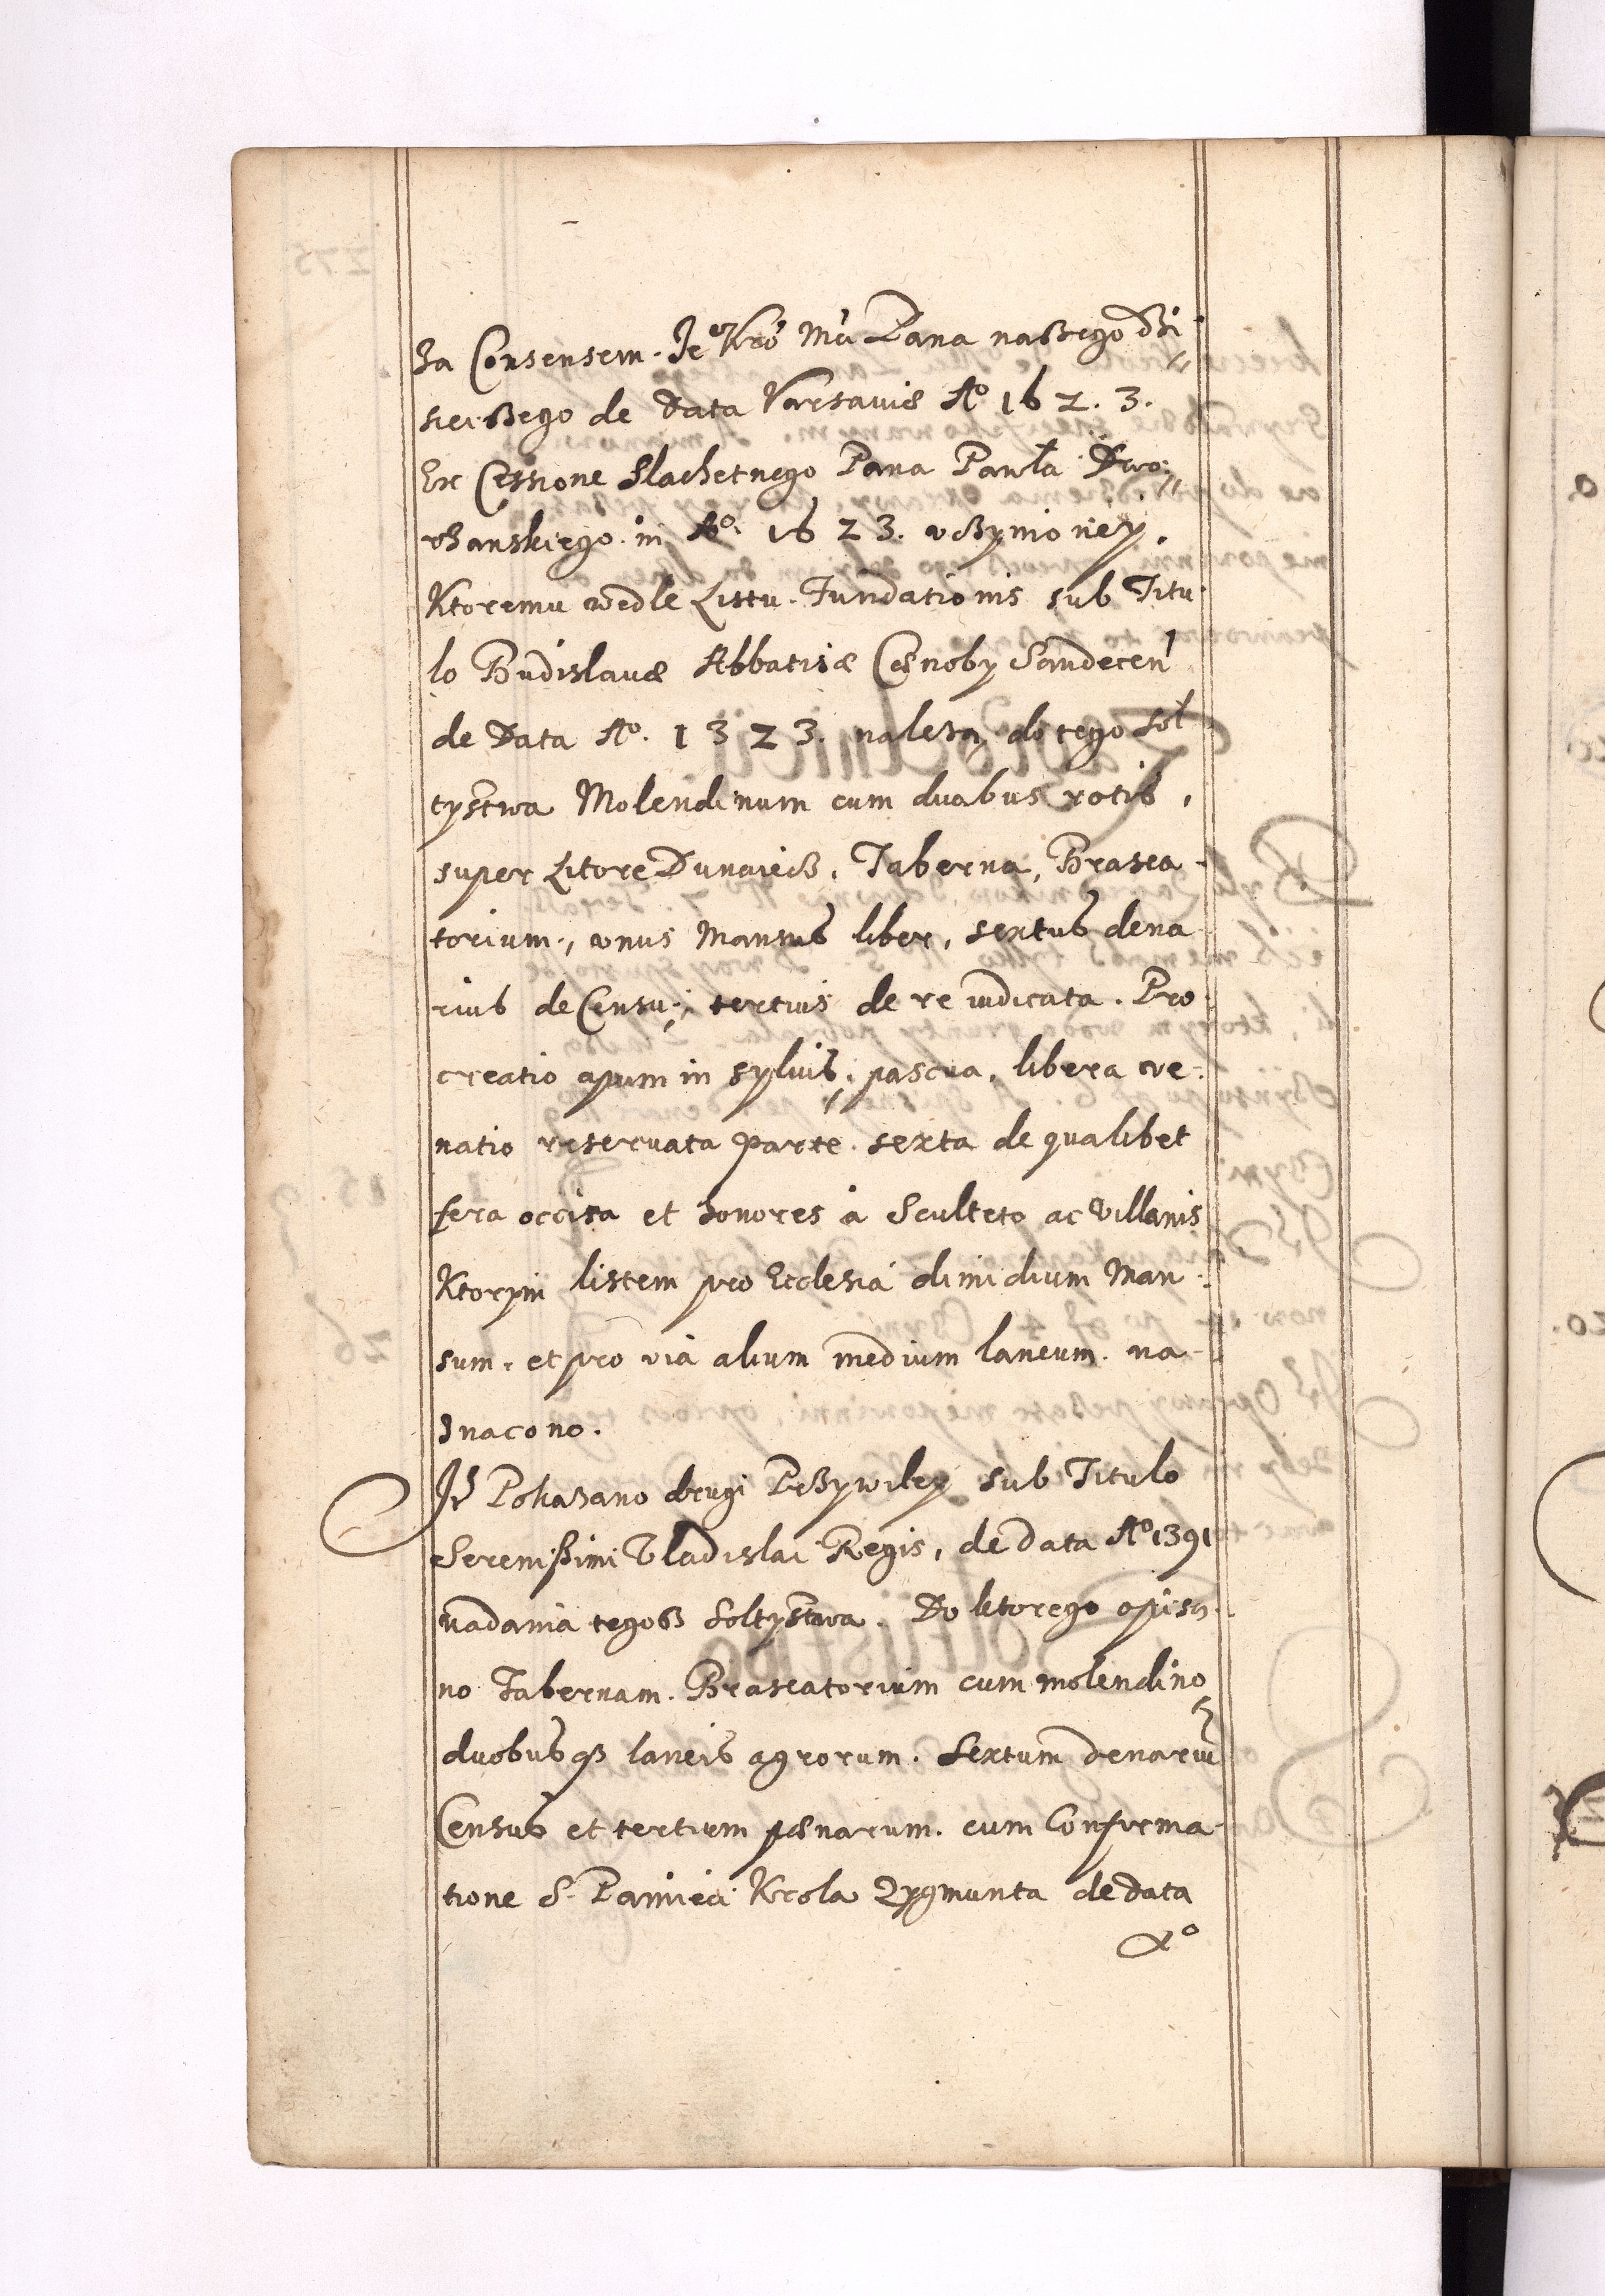 za Consensem. Je⁰ Kro Mci Pana naßego dzi
sieißego de Data Varsaviæ Aº 1623.
Ex Cessione Slachetnego Pana Pawła Dwo
rzanskiego in Aº. 1623. vczynioney.
Ktoremu wedle Listu. Fundationis sub Titu
lo Budislavæ Abbatisæ Cœnoby Sandecen
de Data Aº. 1323. naleza do tego Sol
tystwa Molendinum cum duabus rotis,
super Litore Dunaiecz, Taberna, Brasea
torium, vnus Mansus liber, sextus dena
rius de Censu, tertius de re iudicata. Pro
creatio apum in syluis, pascua, libera ve
natio reseruata parte sexta de qualibet
fera occisa et honores à Sculteto ac Villanis
Ktorym listem pro Ecclesia dimidium Man
sum, et pro via alium medium laneum. na
znacono.
Jt Pokazano drugi Przywiley sub Titulo
Serenißimi Vladislai Regis, de data Aº 1391
nadania tegoß Soltystwa. Do ktorego opisa
no Tabernam. Braseatorium cum molendino
duobusq3 laneis agrorum. Sextum denariu
Census et tertium pœnarum. cum Confirma
tione S. Pamieci Krola Zygmunta de data
Aº